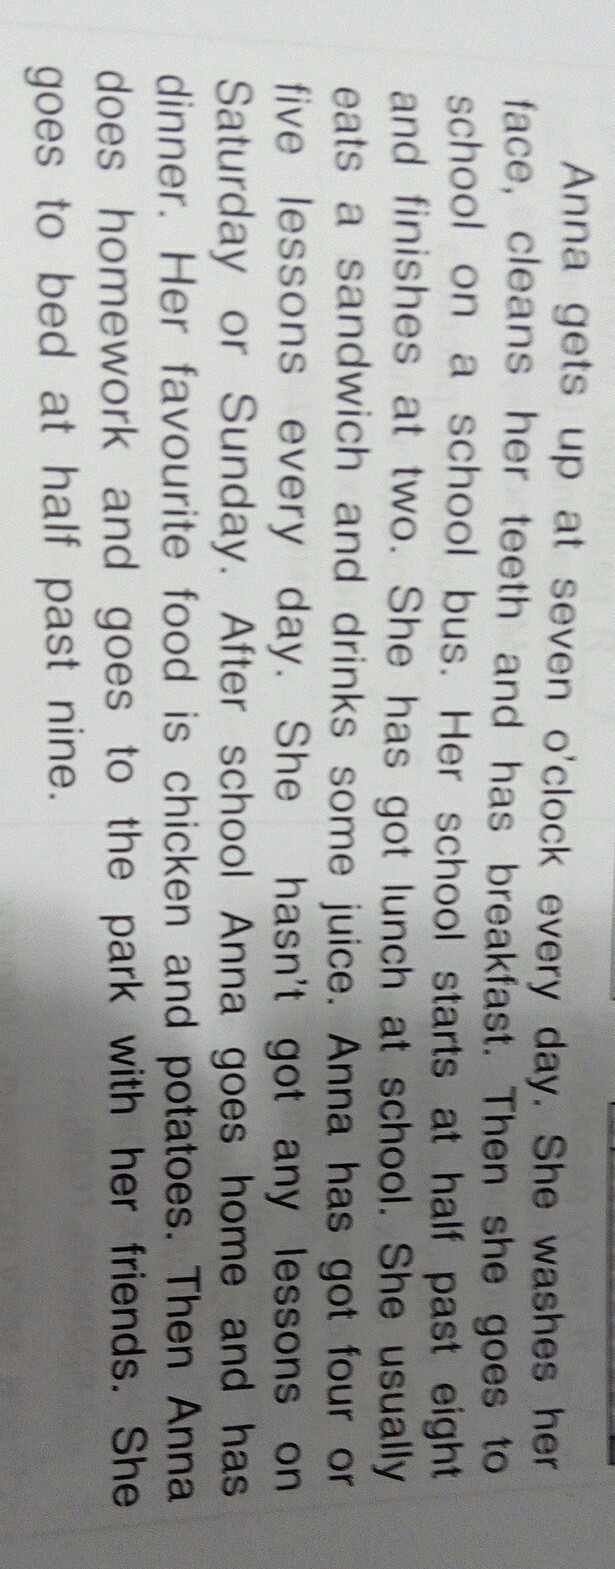 Anna gets up at seven o'clock every day. She washes her
face, cleans her teeth and has breakfast. Then she goes to
school on a school bus. Her school starts at half past eight
and finishes at two. She has got lunch at school. She usually
eats a sandwich and drinks some juice. Anna has got four or
five lessons every day. She hasn't got any lessons on
Saturday or Sunday. After school Anna goes home and has
dinner. Her favourite food is chicken and potatoes. Then Anna
does homework and goes to the park with her friends. She
goes to bed at half past nine.